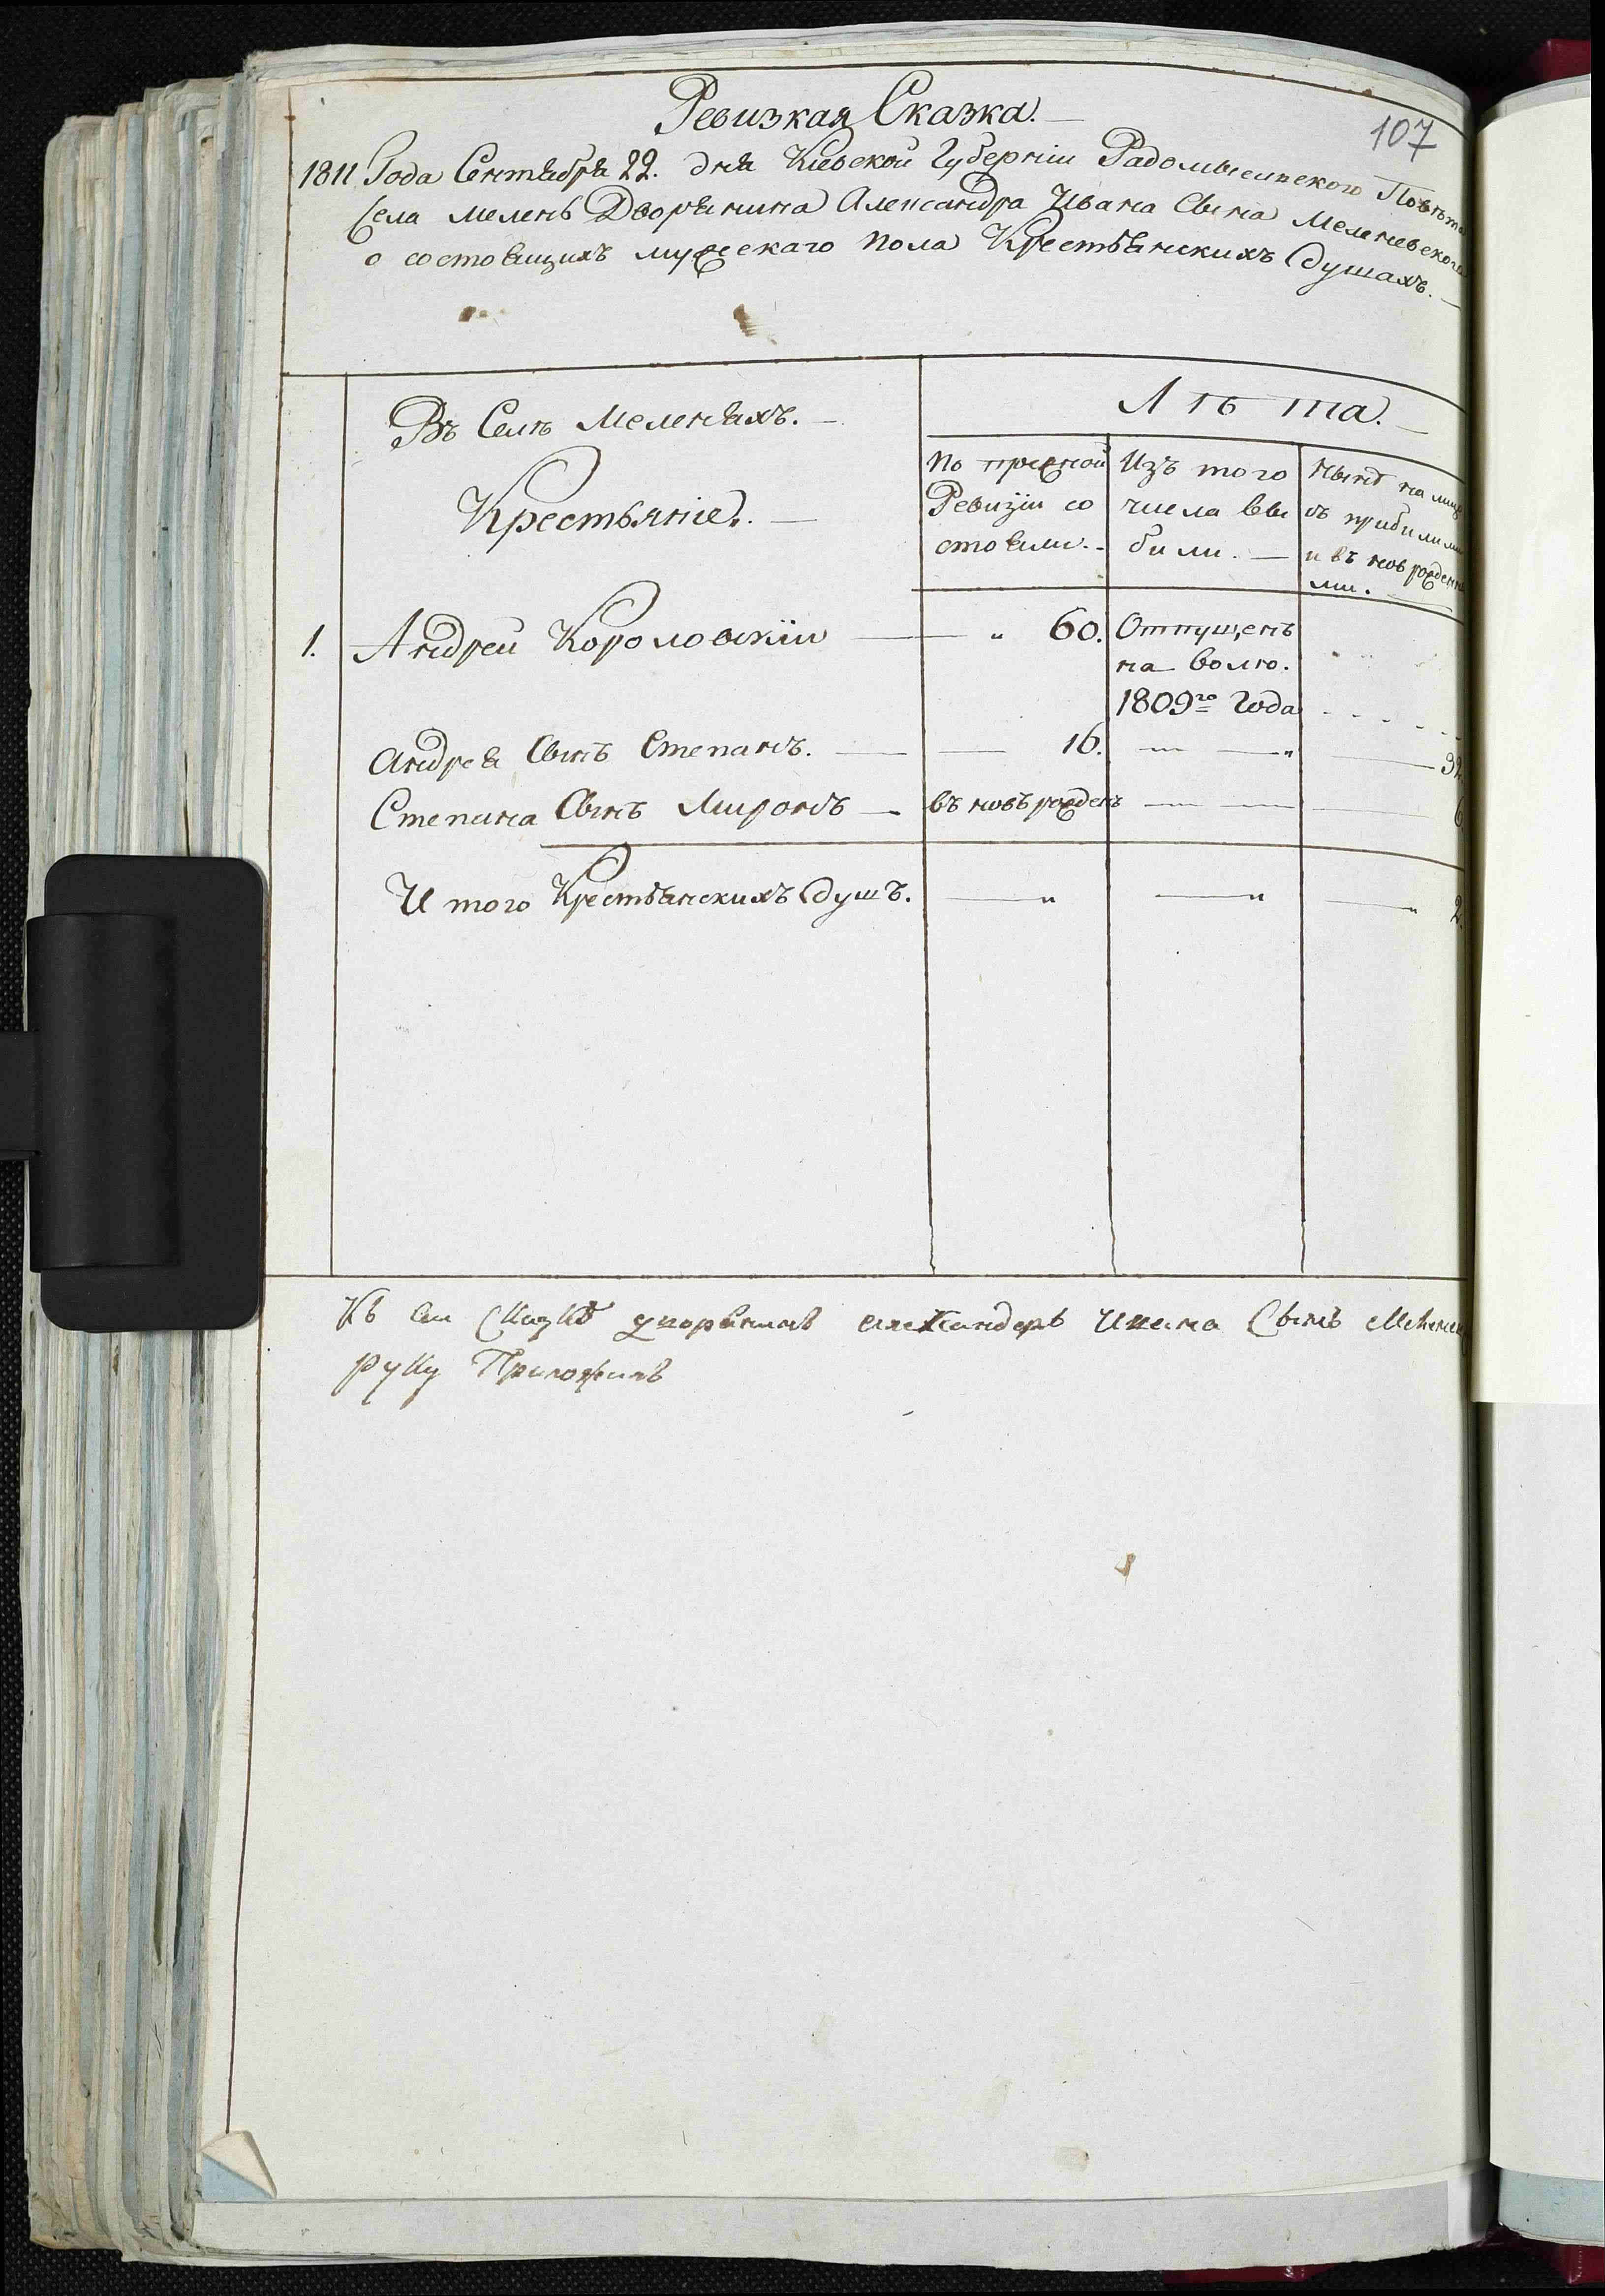 Ревизкая Сказка.
107
1811 Года Сентября 22. дня Киевской Губернiи Радомысльского Повѣта
Села Мелень Дворянина Александра Ивана Сына Меленевского
о состоящихъ мужескаго пола Крестьянскихъ душахъ.
Въ Селѣ Меленяхъ.
Крестьянiе.
Лѣта.
По прежной Ревизiи состояли.
Изъ того числа выбили.
Нынѣ на лицо съ прибилими и въ новъ рожденними.
1. Андрей Короловскiй 60. Отпущенъ
на волю.
1809го Года
Андрея Сынъ Степанъ. 16. 32
Степана Сынъ Миронъ въ новъ рожденъ 6
И того Крестьянскихъ душъ. 2.
Къ сей Сказкѣ дворянинъ Александеръ Ивана Сынъ
руку Приложилъ